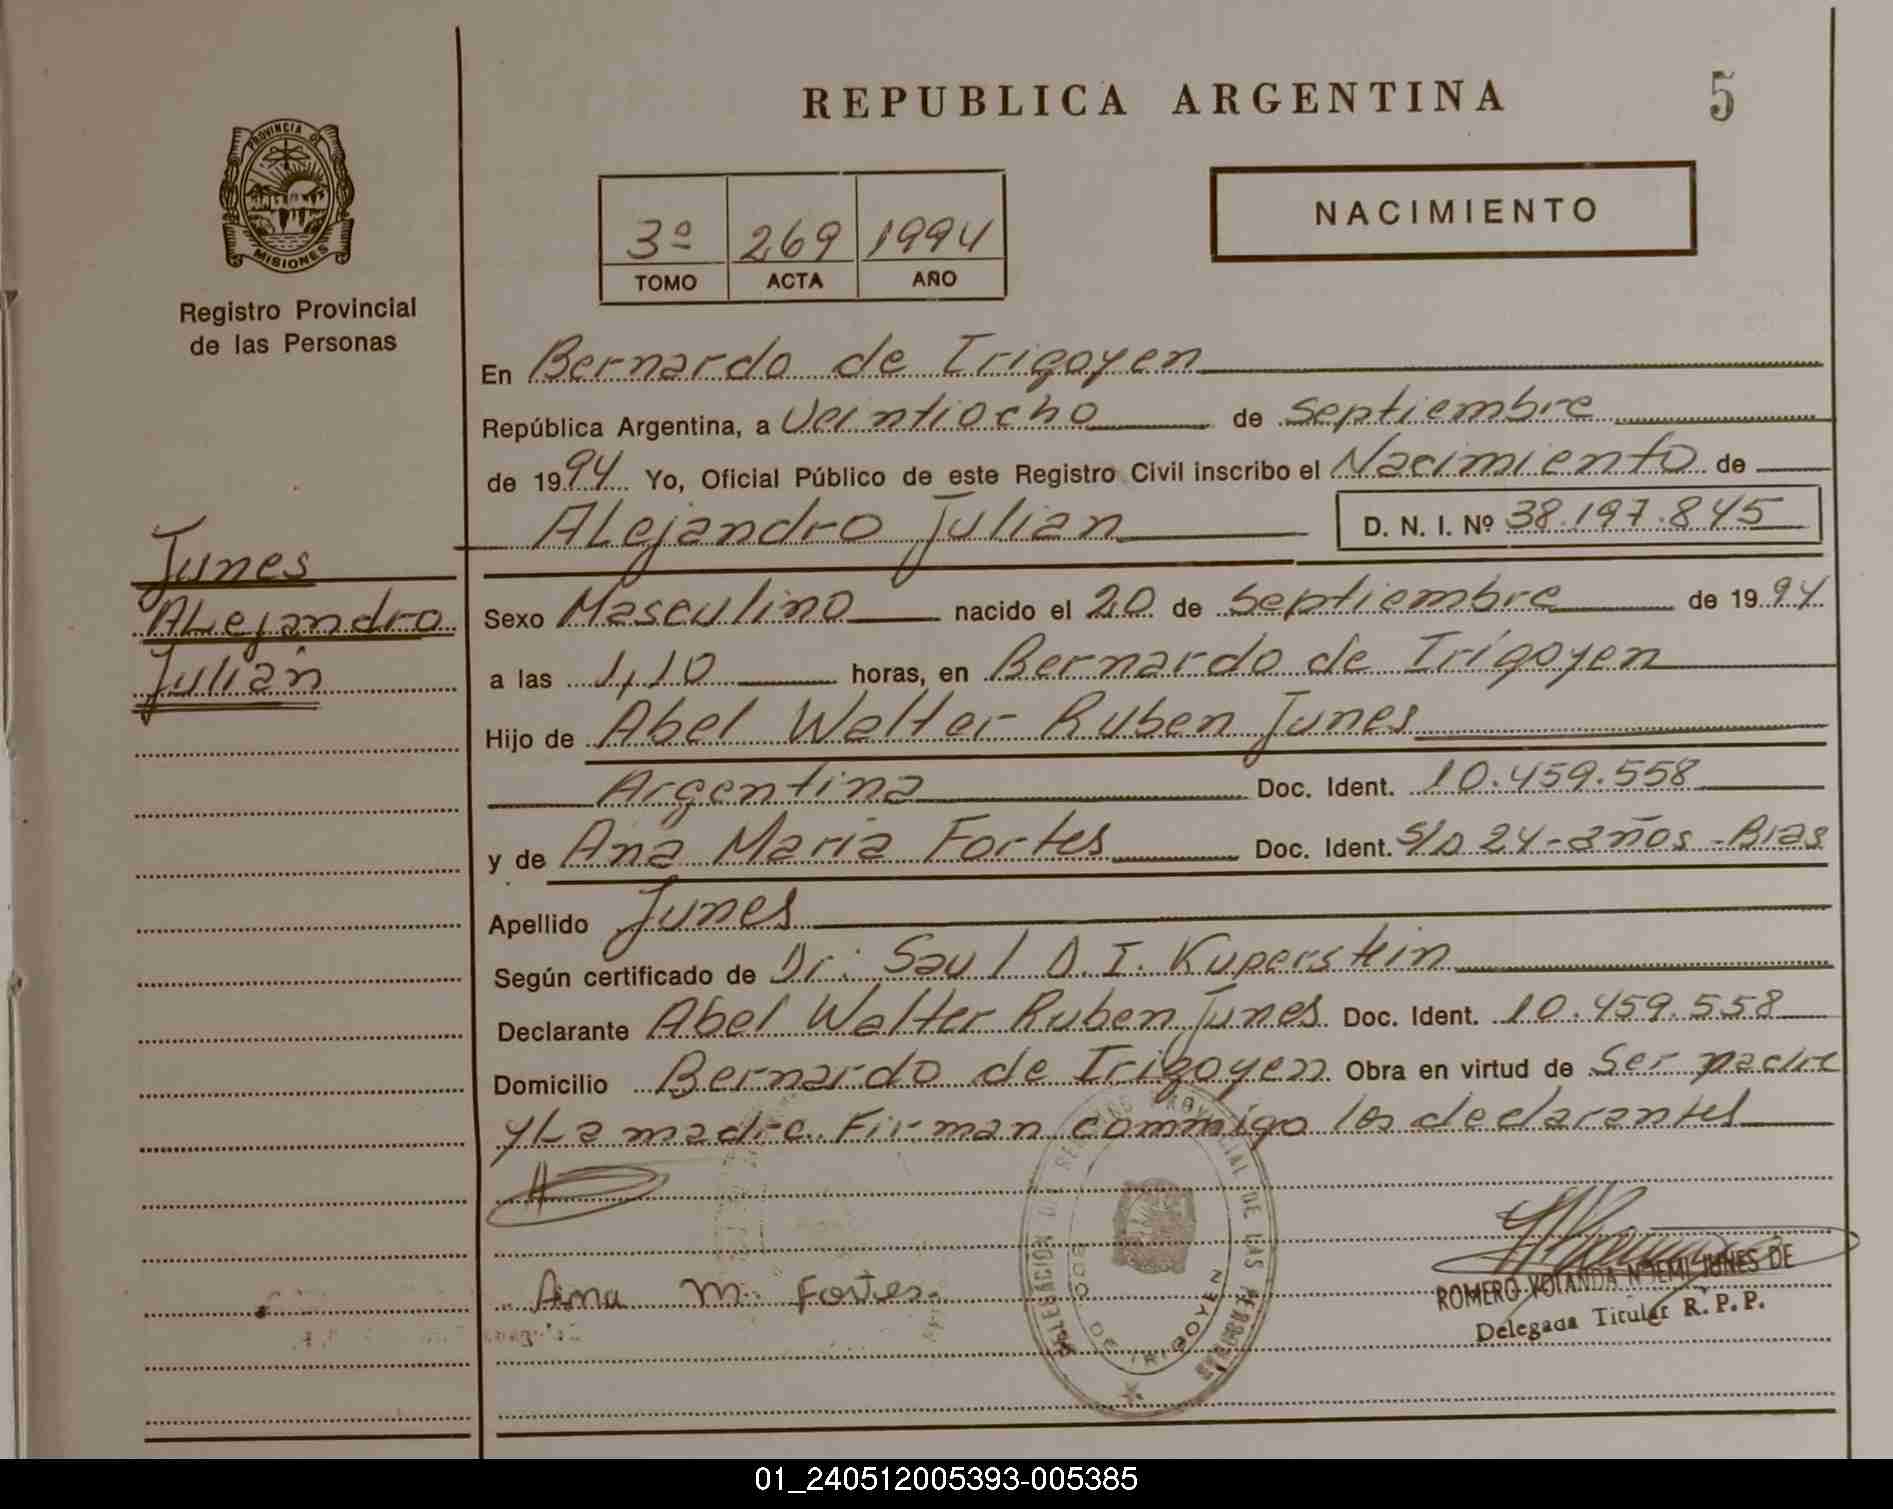 REPUBLICA ARGENTINA
5
PROVINCIA DE
MISIONES
Registro Provincial
de las Personas
3º 269 1994
TOMO ACTA AÑO
NACIMIENTO
En Bernardo de Irigoyen
República Argentina, a Veintiocho de Septiembre
de 1994 Yo, Oficial Público de este Registro Civil inscribo el Nacimiento de
Alejandro Julian D. N. I. Nº 38.197.845
Junes
Alejandro
Julian
Sexo Masculino nacido el 20 de Septiembre de 1994
a las 1,10 horas, en Bernardo de Irigoyen
Hijo de Abel Walter Ruben Junes
Argentina Doc. Ident. 10.459.558
y de Ana Maria Fortes Doc. Ident. S/D 24-años-Bras
Apellido Junes
Según certificado de Dr: Saul D. I. Kuperstein
Declarante Abel Walter Ruben Junes Doc. Ident. 10.459.558
Domicilio Bernardo de Irigoyen Obra en virtud de Ser padre
y La madre. Firman commigo los declarantes
DELEGACION DEL REGISTRO PROVINCIAL DE LAS PERSONAS
BDO DE IRIGOYEN
Ana M. Fortes
ROMERO YOLANDA NOEMI JUNES DE
Delegada Titular R. P. P.
01_240512005393-005385